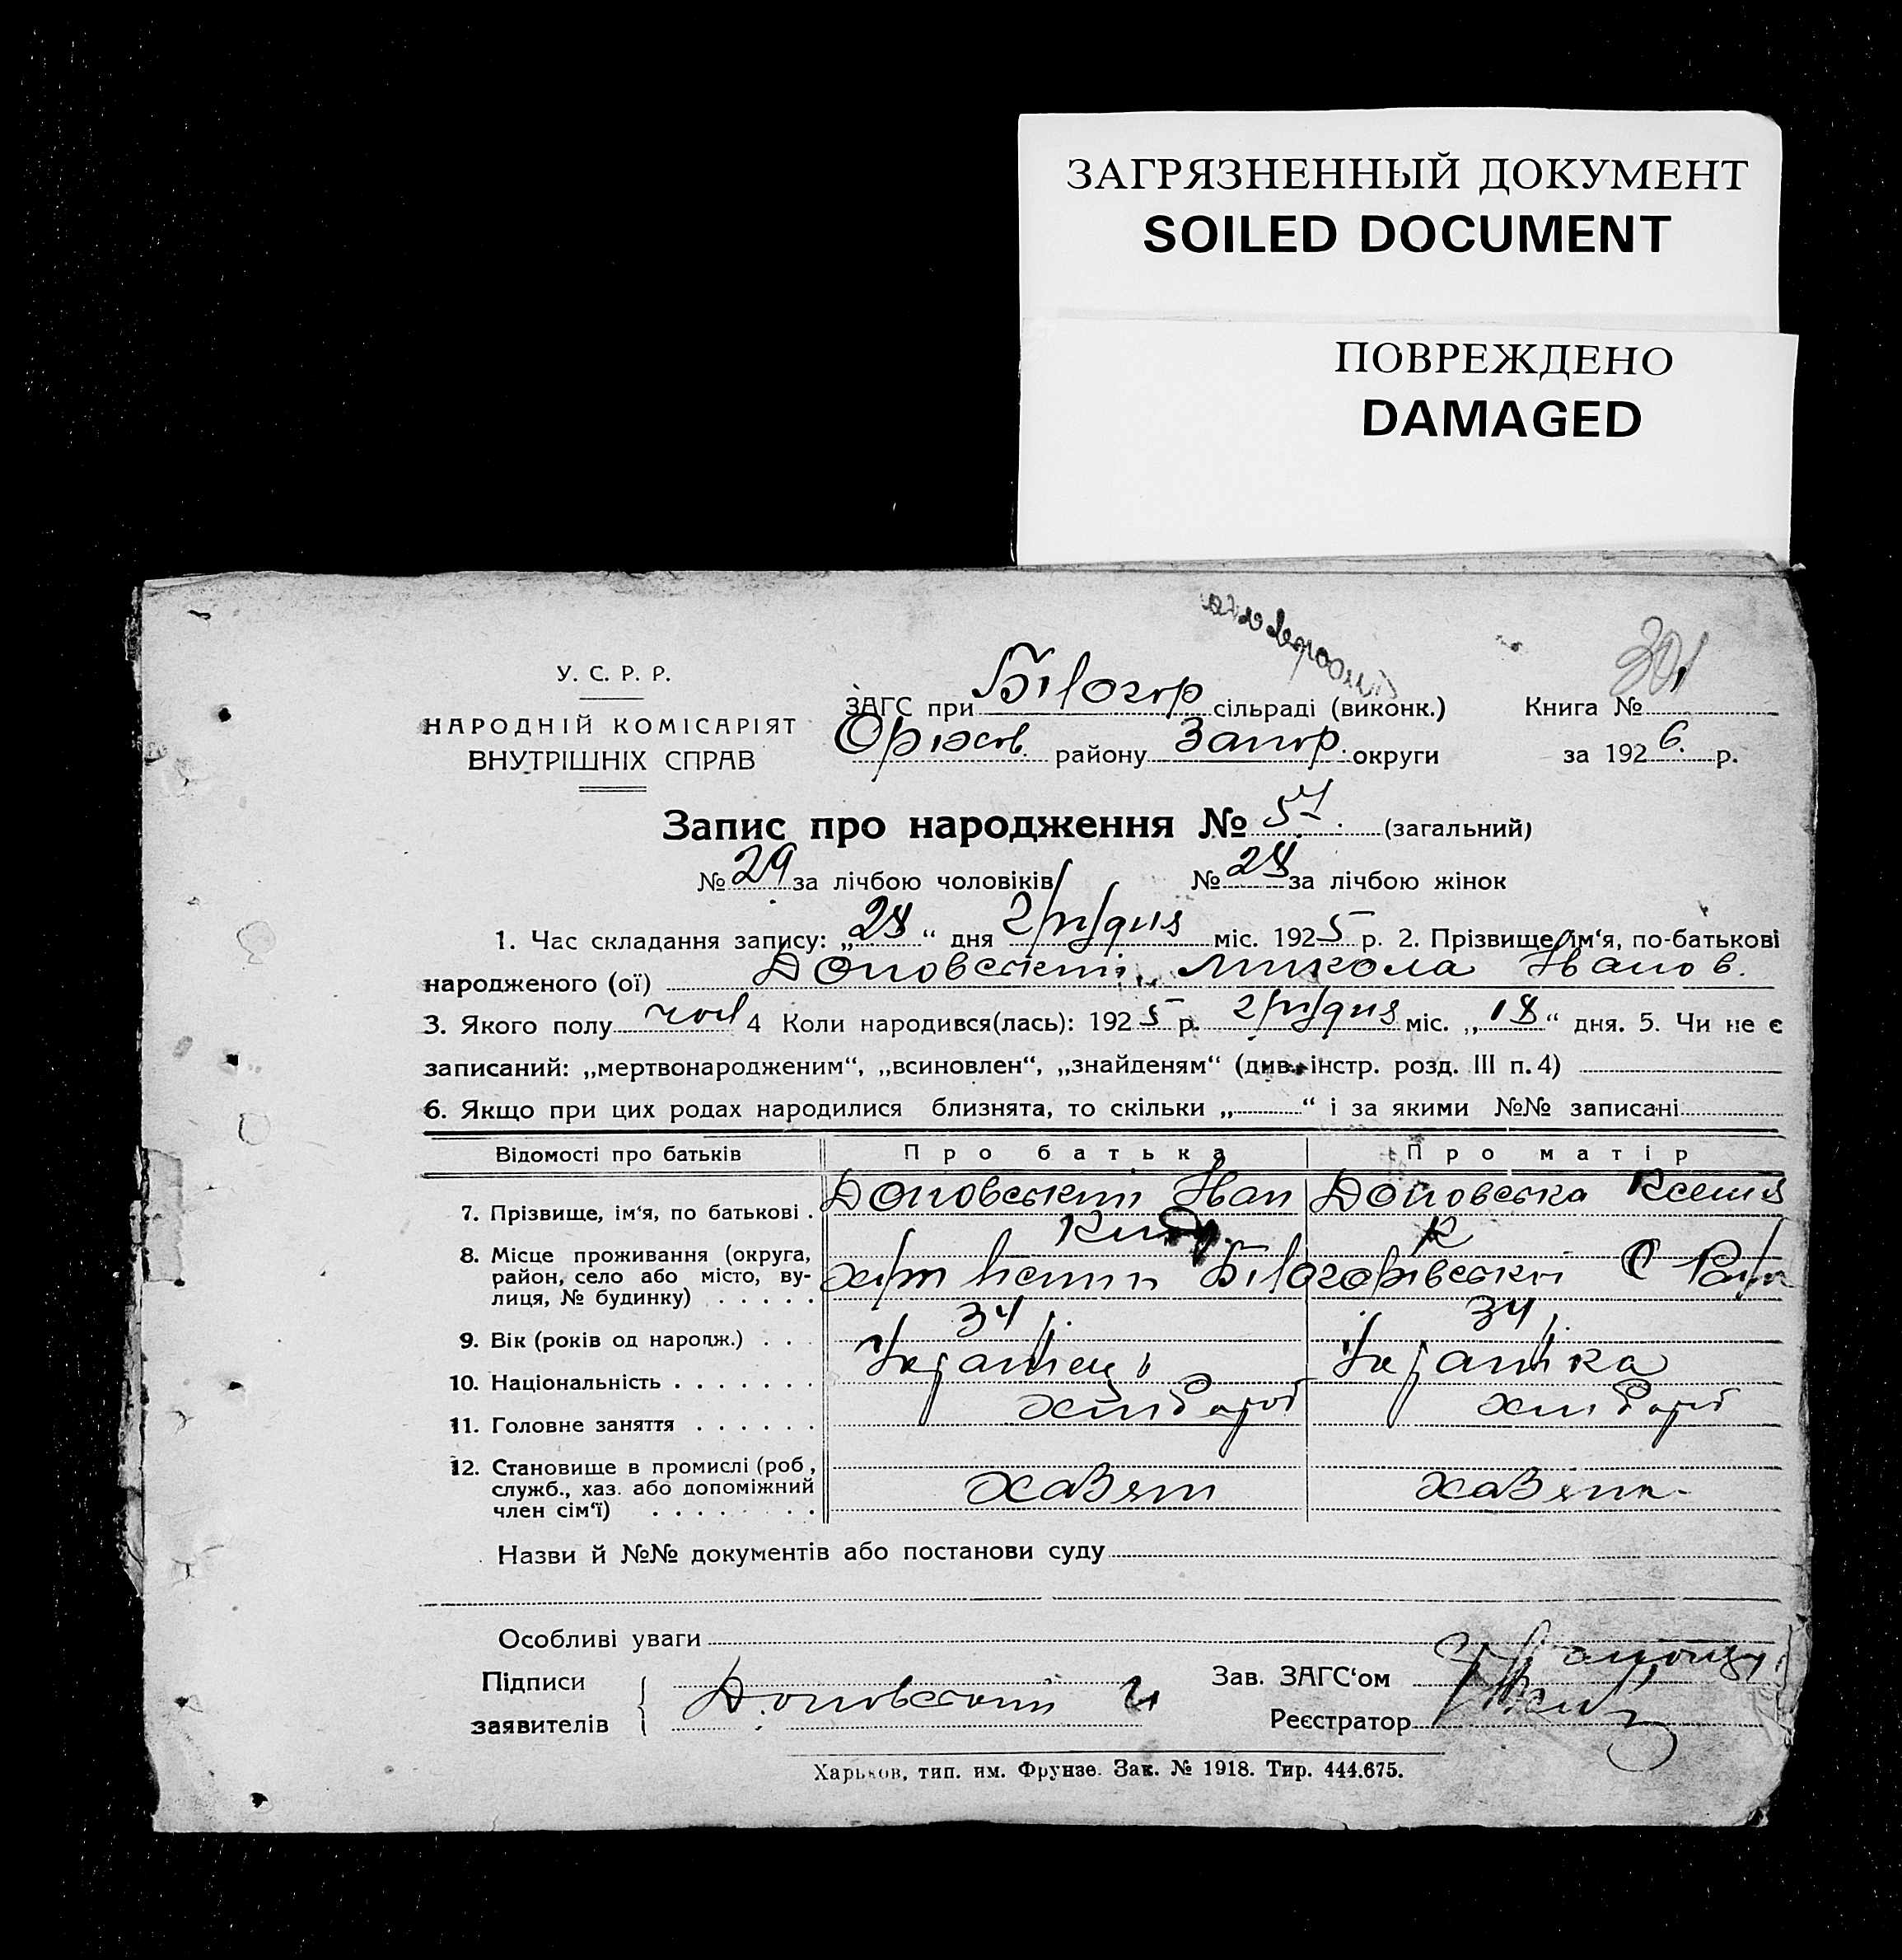 ЗАГРЯЗНЕННЫЙ ДОКУМЕНТ
SOILED DOCUMENT
ПОВРЕЖДЕНО
DAMAGED
301
У. С. Р. Р.
НАРОДНІЙ КОМІСАРІЯТ
ВНУТРІШНІХ СПРАВ
ЗАГС при Білогор сільраді (виконк.)
Оріхов. району Запор. округи
Книга №
за 1926. р.
Запис про народження № 57. (загальний)
№ 29 за лічбою чоловіків № 28 за лічбою жінок
1. Час складання запису: „28“ дня грудня міс. 1925 р. 2. Прізвище, ім‘я, по-батькові
народженого (ої) Доповський Микола Іванов.
3. Якого полу чол 4 Коли народився(лась): 1925 р. грудня міс. „18“ дня. 5. Чи не є
записаний: „мертвонародженим“, „всиновлен“, „знайденям“ (див. інстр. розд. III п. 4)
6. Якщо при цих родах народилися близнята, то скільки „ “ і за якими №№ записані
Відомості про батьків Про батька Про матір
7. Прізвище, ім‘я, по батькові . Доповський Іван Доповська Ксенія
К
8. Місце проживання (округа, район, село або місто, вулиця, № будинку) . . . . . Білогорівської С Ради
9. Вік (років од народж.) . . . 34 р. 34 р.
10. Національність . . . . . . . Українець Українка
11. Головне заняття . . . . . . хлібороб хлібороб
12. Становище в промислі (роб., служб., хаз. або допоміжний член сім‘ї) . . . . . . . хазяїн хазяйк.
Назви й №№ документів або постанови суду
Особливі уваги
Підписи
заявителів Доповський И
Зав. ЗАГС‘ом
Реєстратор
Харьков, тип. им. Фрунзе. Зак. № 1918. Тир. 444.675.